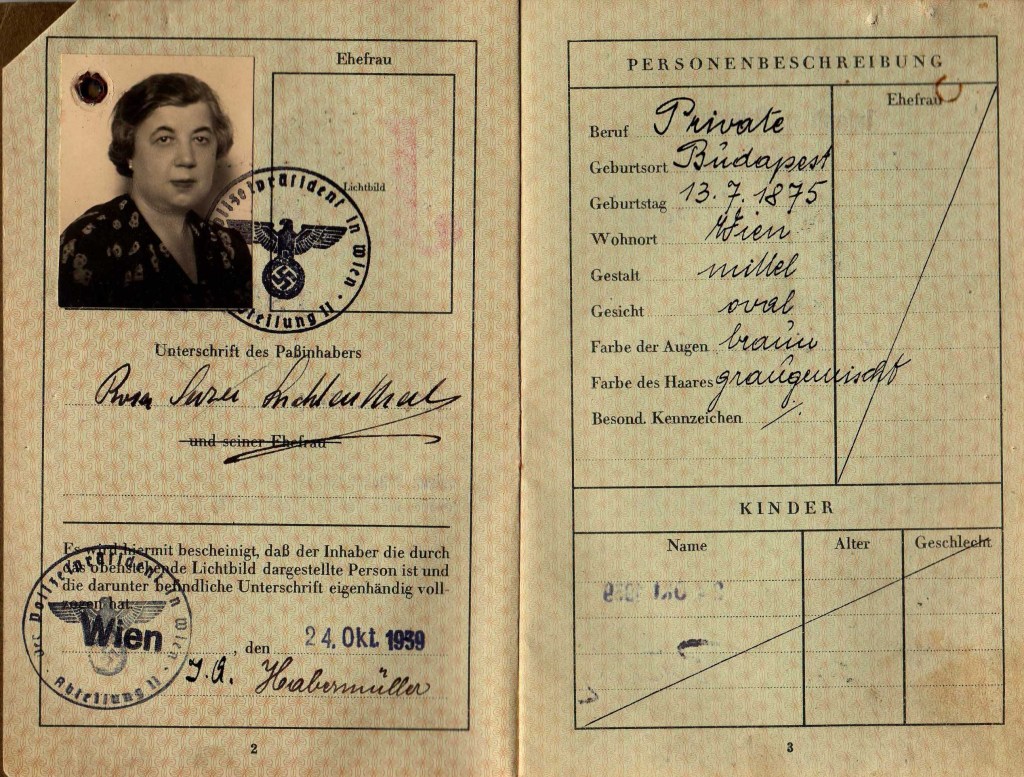 Ehefrau
Lichtbild
Polizeipräsident in Wien · Abteilung II
Unterschrift des Paßinhabers
Rosa Lichtenthal
und seiner Ehefrau
Es wird hiermit bescheinigt, daß der Inhaber die durch
das obenstehende Lichtbild dargestellte Person ist und
die darunter befindliche Unterschrift eigenhändig voll-
zogen hat.
Der Polizeipräsident in Wien · Abteilung II
Wien, den 24. Okt. 1939
J.A. Habermüller
2
PERSONENBESCHREIBUNG
Ehefrau
Beruf Private
Geburtsort Budapest
Geburtstag 13.7.1875
Wohnort Wien
Gestalt mittel
Gesicht oval
Farbe der Augen braun
Farbe des Haares graugemischt
Besond. Kennzeichen /.
KINDER
Name Alter Geschlecht
3